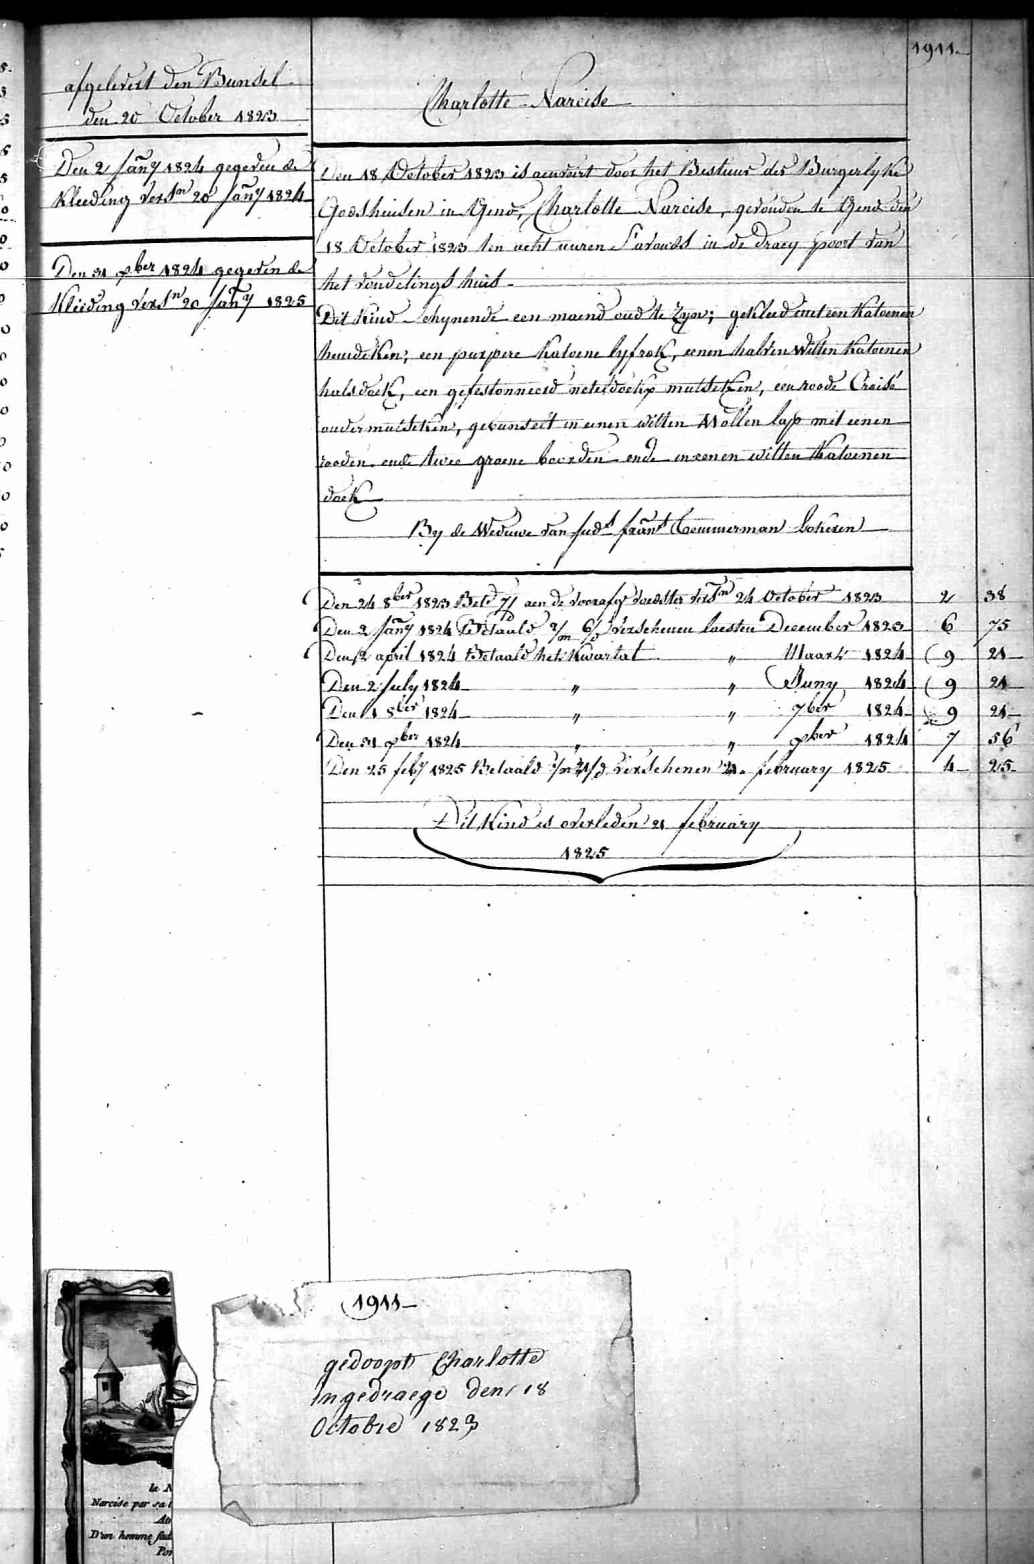 1911.
afgelevert den Bundel
den 20 October 1823
Den 2 Jany 1824 gegeven de
Kleeding versn 20 Jany 1824
Den 31 xber 1824 gegeven de
Kleeding versn 20 Jany 1825
Charlotte Narcise
Den 18 October 1823 is aenveirt door het Bestuur der Burgerlyke
Godshuisen in Gend, Charlotte Narcise, gevonden te Gend den
18 October 1823 ten acht uuren S'avonds in de Draey poort van
het vondelings huis
Dit Kind schynende een maend oud te zyn; gekleed met een Katoenen
hemdeken; een purpere katoene lyfrok, eenen halven Witten Katoenen
halsdoek, een gefestonneerd neteldoekx mutseken, een roode Croisé
ondermutseken, gebunselt in eenen witten Wollen lap met eenen
rooden ende twee groene boorden ende in eenen witten Katoenen
doek
By de Weduwe van Judo frans Temmerman Lokeren
Den 24 8ber 1823 Bete aen de voorafg voedster versn 24 October 1823 2 38
Den 2 Jany 1824 Betaald 2/m 6/d Verschenen laesten December 1823 6 75
Den 2 april 1824 Betaald het Kwartal " Maart 1824 9 21
Den 2 July 1824 " " Juny 1824 9 21
Den 1 8ber 1824 " " 7ber 1824 9 21
Den 31 xber 1824 " " xber 1824 7 56
Den 25 feby 1825 Betaald 1/m 21/d verschenen 21 february 1825 4 25
Dit Kind is overleden 21 february
1825
1911
gedoopt Charlotte
Ingedraege den 18
Octobre 1823
le N
Narcise par sa
D'un homme